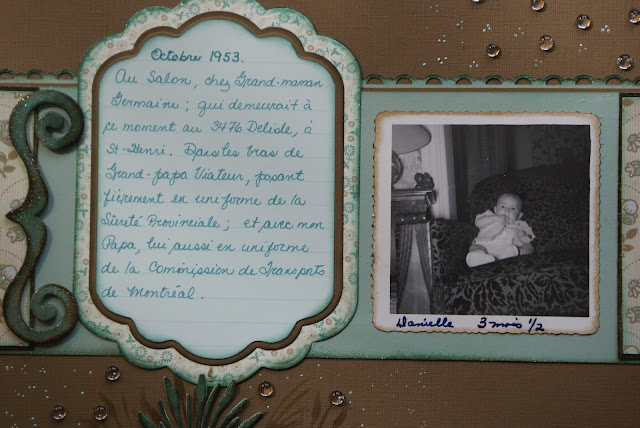 Octobre 1953.
Au Salon, chez Grand-maman
Germaine; qui demeurait à
ce moment au 3476 Delisle, à
St-Henri. Dans les bras de
Grand-papa Viateur, posant
fièrement en uniforme de la
Sûreté Provinciale; et, avec mon
Papa, lui aussi en uniforme
de la Commission de Transports
de Montréal.
Danielle 3 mois 1/2